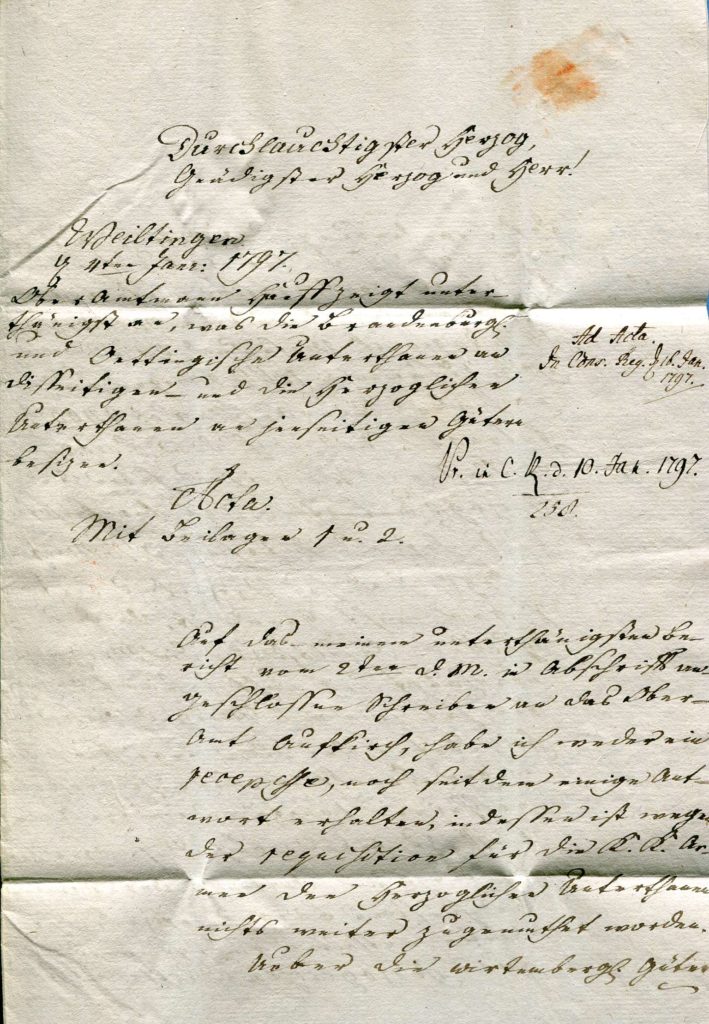 Durchlauchtigster Herzog,
Gnädigster Herzog und Herr!
Weiltingen
d 4ten Janr: 1797.
Ober Amtmann Hauff zeigt unter-
thänigst an, was die Brandenburgl.
und Oettingische Unterthanen an
disseitigen - und die Herzoglichen
Unterthanen an jenseitigen Gütern
besizen.
Ad Acta.
In Cons. Reg. d 16. Jan.
1797.
Pr. in C. R. d. 10. Jan. 1797.
258.
Acta.
Mit Beilagen 1 u. 2.
Auf das meinem unterthänigsten Be-
richt vom 2ten d. M. in Abschrifft an-
geschlossene Schreiben an das Ober-
Amt Aufkirch, habe ich weder ein
recepisse, noch seitdem einige Ant-
wort erhalten, indessen ist wegen
der requisition für die K. K. Ar-
mee den Herzoglichen Unterthanen
nichts weiter zugemuthet worden.
Ueber die wirtembergl. Güter